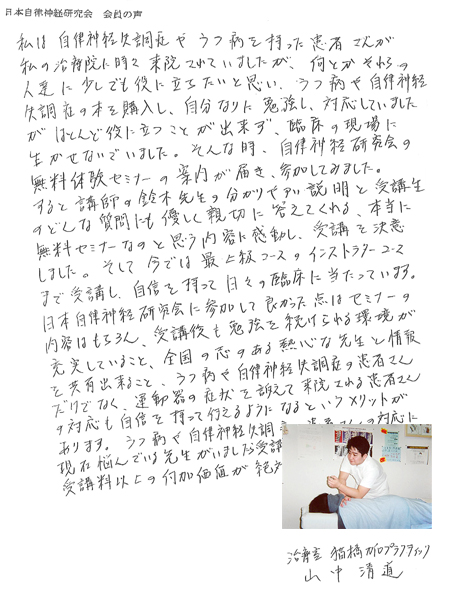 日本自律神経研究会 会員の声
私は自律神経失調症やうつ病を持った患者さんが
私の治療院に時々来院されていましたが、何とかそれらの
人達に少しでも役に立ちたいと思い、うつ病や自律神経
失調症の本を購入し、自分なりに勉強し、対応していました
がほとんど役に立つことが出来ず、臨床の現場に
生かせないでいました。そんな時、自律神経研究会の
無料体験セミナーの案内が届き、参加してみました。
すると講師の鈴木先生の分かりやすい説明と受講生
のどんな質問にも優しく親切に答えてくれる、本当に
無料セミナーなのと思う内容に感動し、受講を決意
しました。そして今では最上級コースのインストラクターコース
まで受講し、自信を持って日々の臨床に当たっています。
日本自律神経研究会に参加して良かった点はセミナーの
内容はもちろん、受講後も勉強を続けられる環境が
充実していること、全国の志のある熱心な先生と情報
を共有出来ること、うつ病や自律神経失調症の患者さん
だけでなく、運動器の症状を訴えて来院される患者さん
の対応も自信を持って行えるようになるというメリットが
あります。うつ病や自律神経失調症の患者さんの対応に
現在悩んでいる先生がいましたら受講
受講料以上の付加価値が絶対
治療室 猫橋カイロプラクティック
山中清直